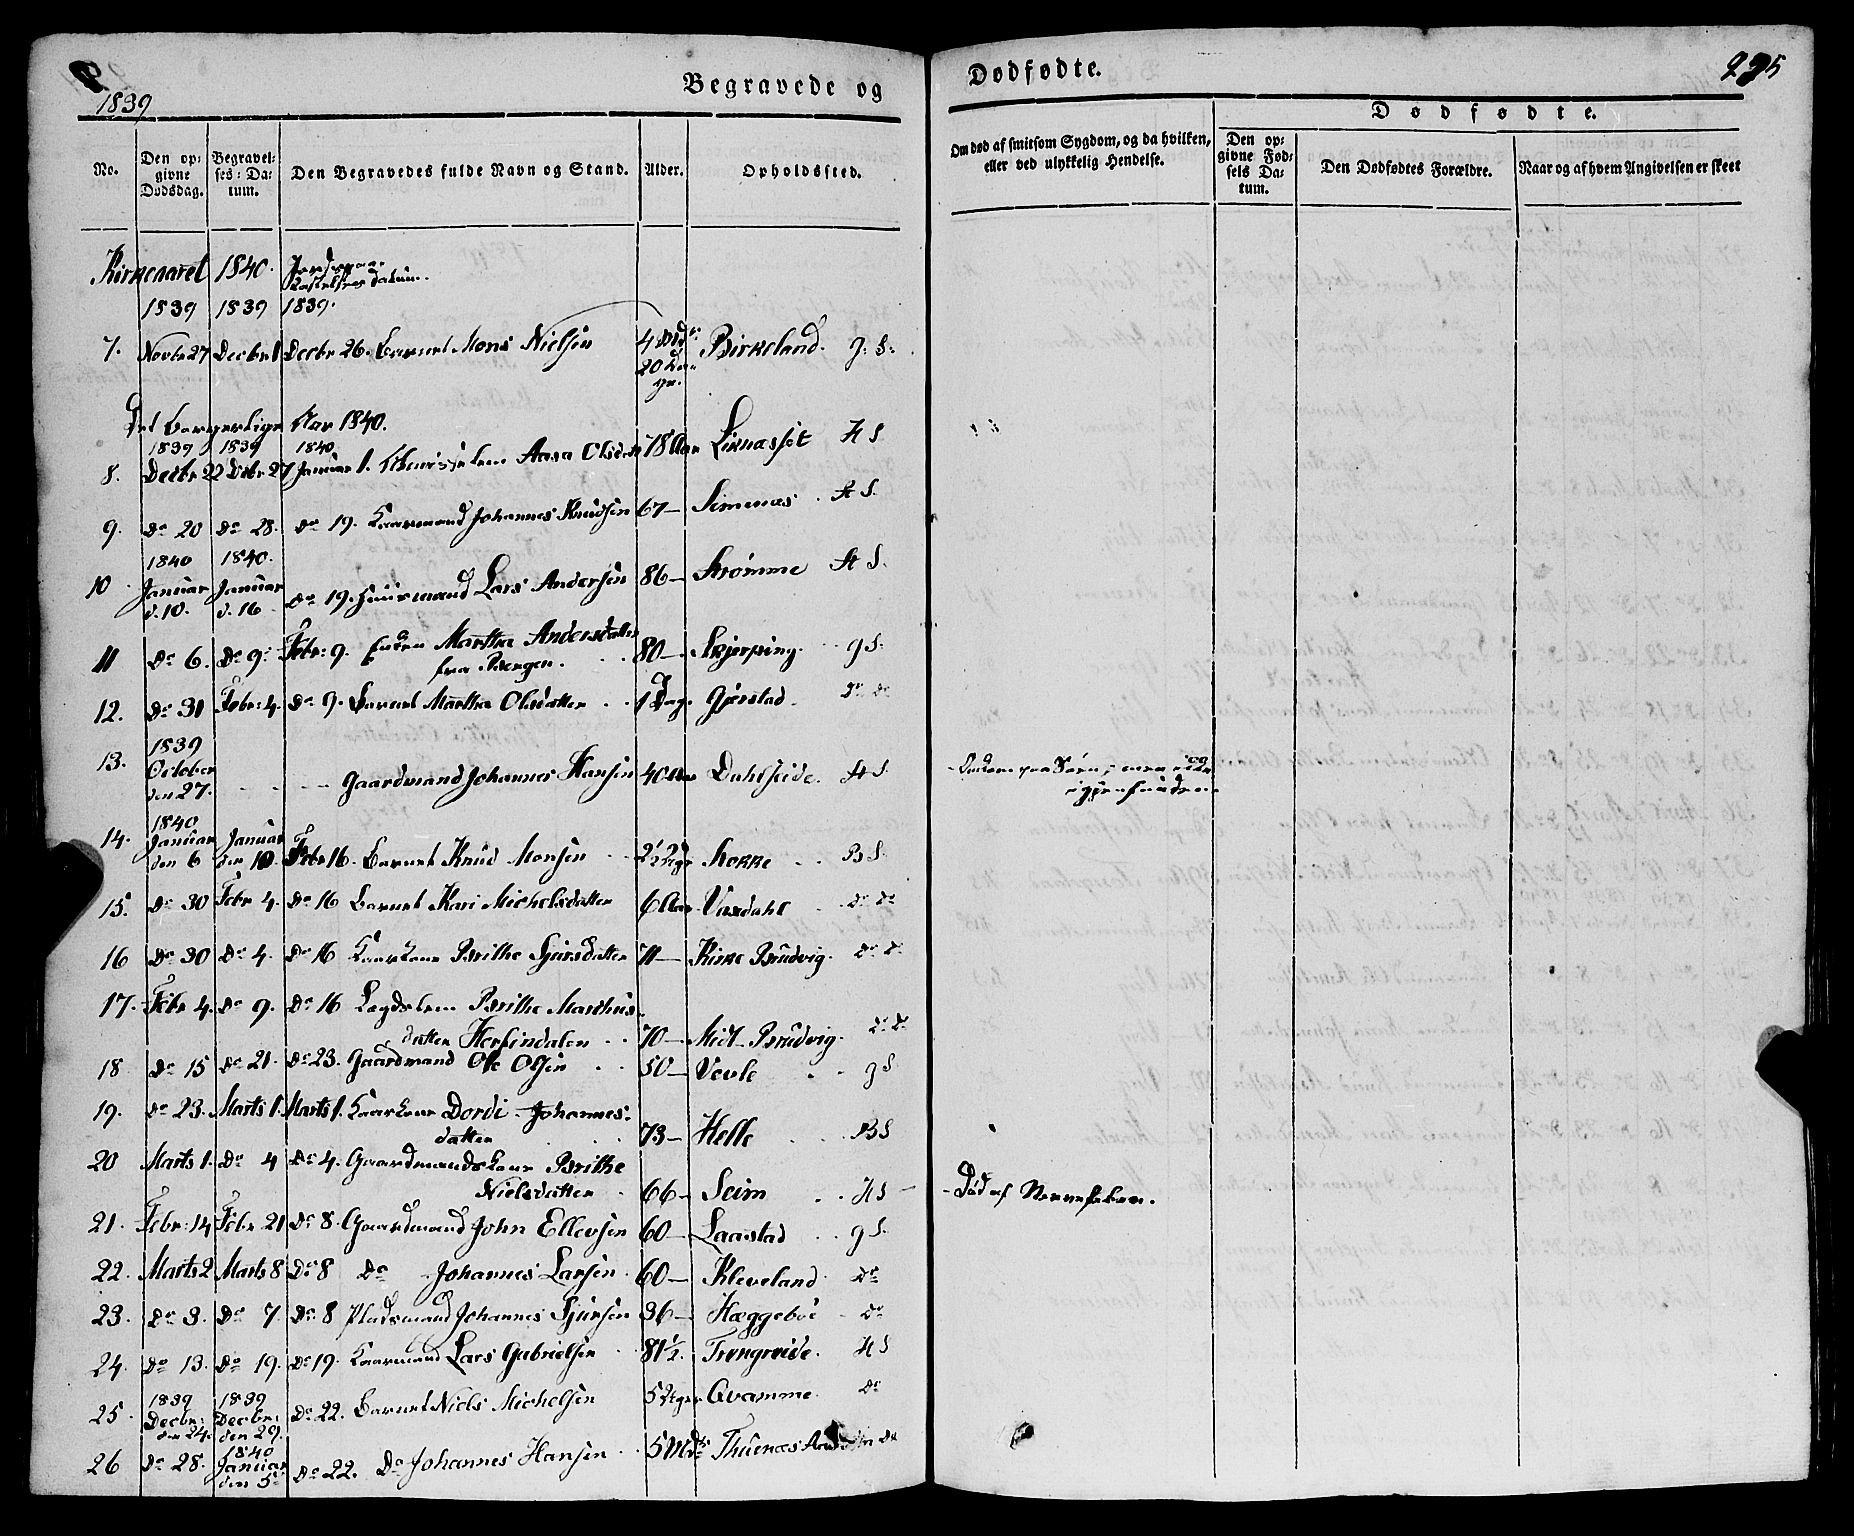 1839
Begravede og
Dødfødte.
Dødfødte.
No.
Den opgivne Dødsdag.
Begravelses-Datum.
Den Begravedes fulde Navn og Stand.
Alder.
Opholdssted.
Om død af smitsom Sygdom, og da hvilken, eller ved ulykkelig Hendelse.
Den opgivne Fødsels Datum.
Den Dødfødtes Forældre.
Naar og af hvem Angivelsen er skeet
Kirkeaaret 1840.
1839 1839 1839.
7. Novbr 27 Decbr 1 Decbr 26. Barnet Mons Nielsen 4 Mdr 20 Birkeland. g: S:
Det borgerlige Aar 1840.
1839 1839 1840
8. Decbr 22 Dcbr 27 Januar 1. Aasa Olsdtr 78 Aar H S
9. Do 20 Do 28. Do 19. Kaarmand Johannes Knudsen 67 — Simenæs. H S.
1840 1840.
10 Januar d. 10. Januar d. 16 Do 19. Huusmand Lars Andersen 86 — Strømme H S.
11 Do 6. Do 9. Febr: 9. Enken Marthe Andersdatter fra Bergen. 80 — Skjerping. g S.
12. Do 31 Febr: 4. Do 9. Barnet Marthe Olsdatter 1 Dag. Gjerstad. Do Do
13. 1839 October den 27. Gaardmand Johannes Hansen 40 Aar Dahlseide. H S.
Søen; men ikke igjenfunden.
14. 1840 Januar den 6 Januar den 10. Febr 16. Barnet Knud Monsen 2½ Uger Stokke B S.
15. Do 30 Febr 4. Do 16 Barnet Kari Michelsdatter 6 Aar Vaxdahl Do Do
16 Do 30 Do 4. Do 16 Kaarkone Brithe Sjursdatter 71 — Kirke Brudvig. Do Do
17. Febr 4. Do 9. Do 16 Lægdslem Brithe Mathiusdatter Herfindalen 70 — Midt Brudvig. Do Do
18 Do 15 Do 21. Do 23. Gaardmand Ole Olsen 50 — Vevle g S
19. Do 23. Marts 1. Marts 1. Kaarkone Dordi Johannesdatter 73 — Helle B S
20 Marts 1. Do 4 Do 4. Gaardmandskone Brithe Nielsdatter 66 — Seim H S
Død af Nervefeber.
21. Febr: 14 Febr 21 Do 8. Gaardmand John Ellevsen 60 — Laastad g S.
22. Marts 2 Marts 8 Do 8 Do Johannes Larsen 60 — Kleveland. Do
23. Do 3. Do 7. Do 8 Pladsmand Johannes Sjursen 36 — Hæggebøe Do
24. Do 13. Do 19. Do 19. Kaarmand Lars Gabrielsen 81½. Trengreide. H S
25. 1839 Decbr: den 24. 1839 Decbr: den 29. Do 22. Barnet Niels Michelsen 5 Uger Qvamme. Do
26 Do 28. 1840 Januar den 5te Do 22. Do Johannes Hansen 5 Mdr Thuenæs Do